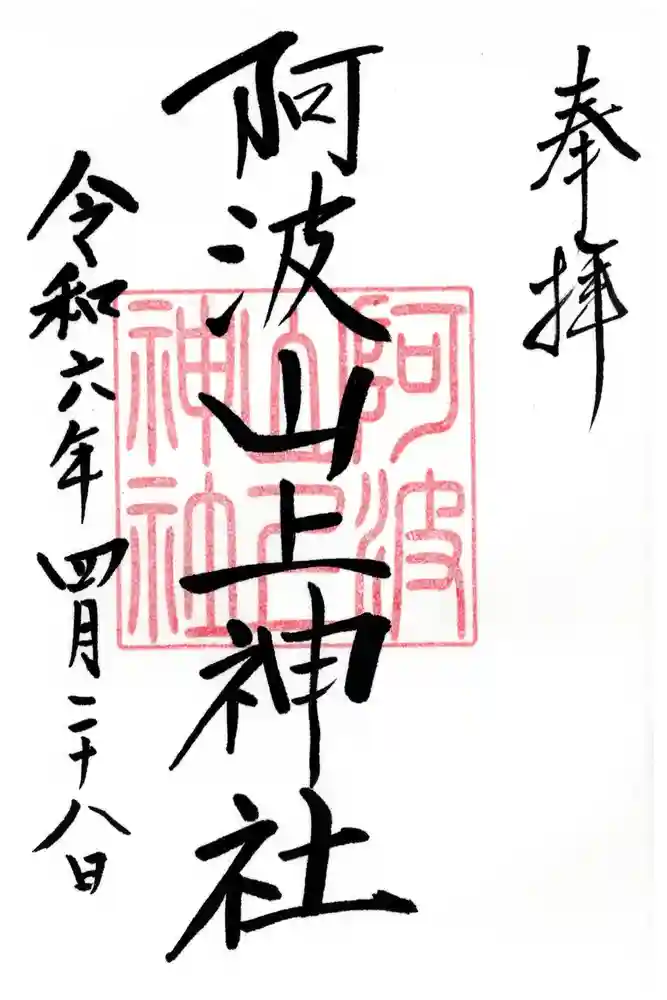 奉拝
阿波山上神社
阿波山上神社
令和六年四月二十八日